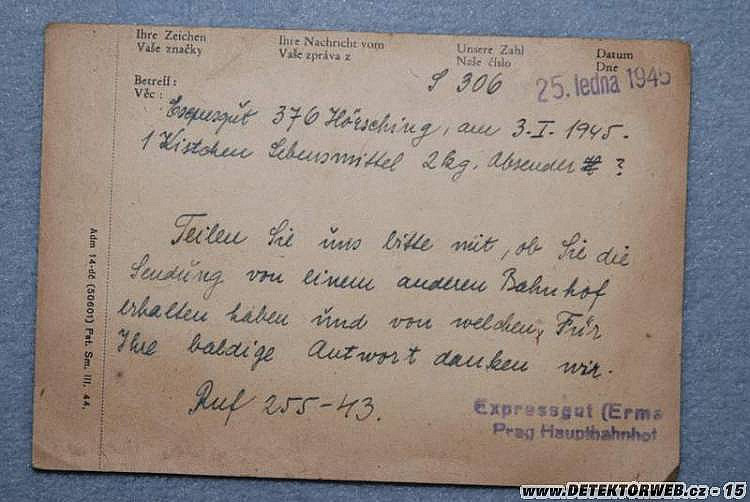 Ihre Zeichen
Vaše značky
Ihre Nachricht vom
Vaše zpráva z
Unsere Zahl
Naše číslo
Datum
Dne
S 306
25. ledna 1945
Betreff:
Věc:
Expressgut 376 Hörsching, am 3-I-1945.
1 Kistchen Lebensmittel 2 kg. Absender ?
Teilen Sie uns bitte mit, ob Sie die
Sendung von einem anderen Bahnhof
erhalten haben und von welchen. Für
Ihre baldige Antwort danken wir.
Ruf 255-43.
Expressgut (Erma
Prag Hauptbahnhof
Adm 14-dč (50601) Pat. Sm. III. 44.
www.DETEKTORWEB.cz - 15